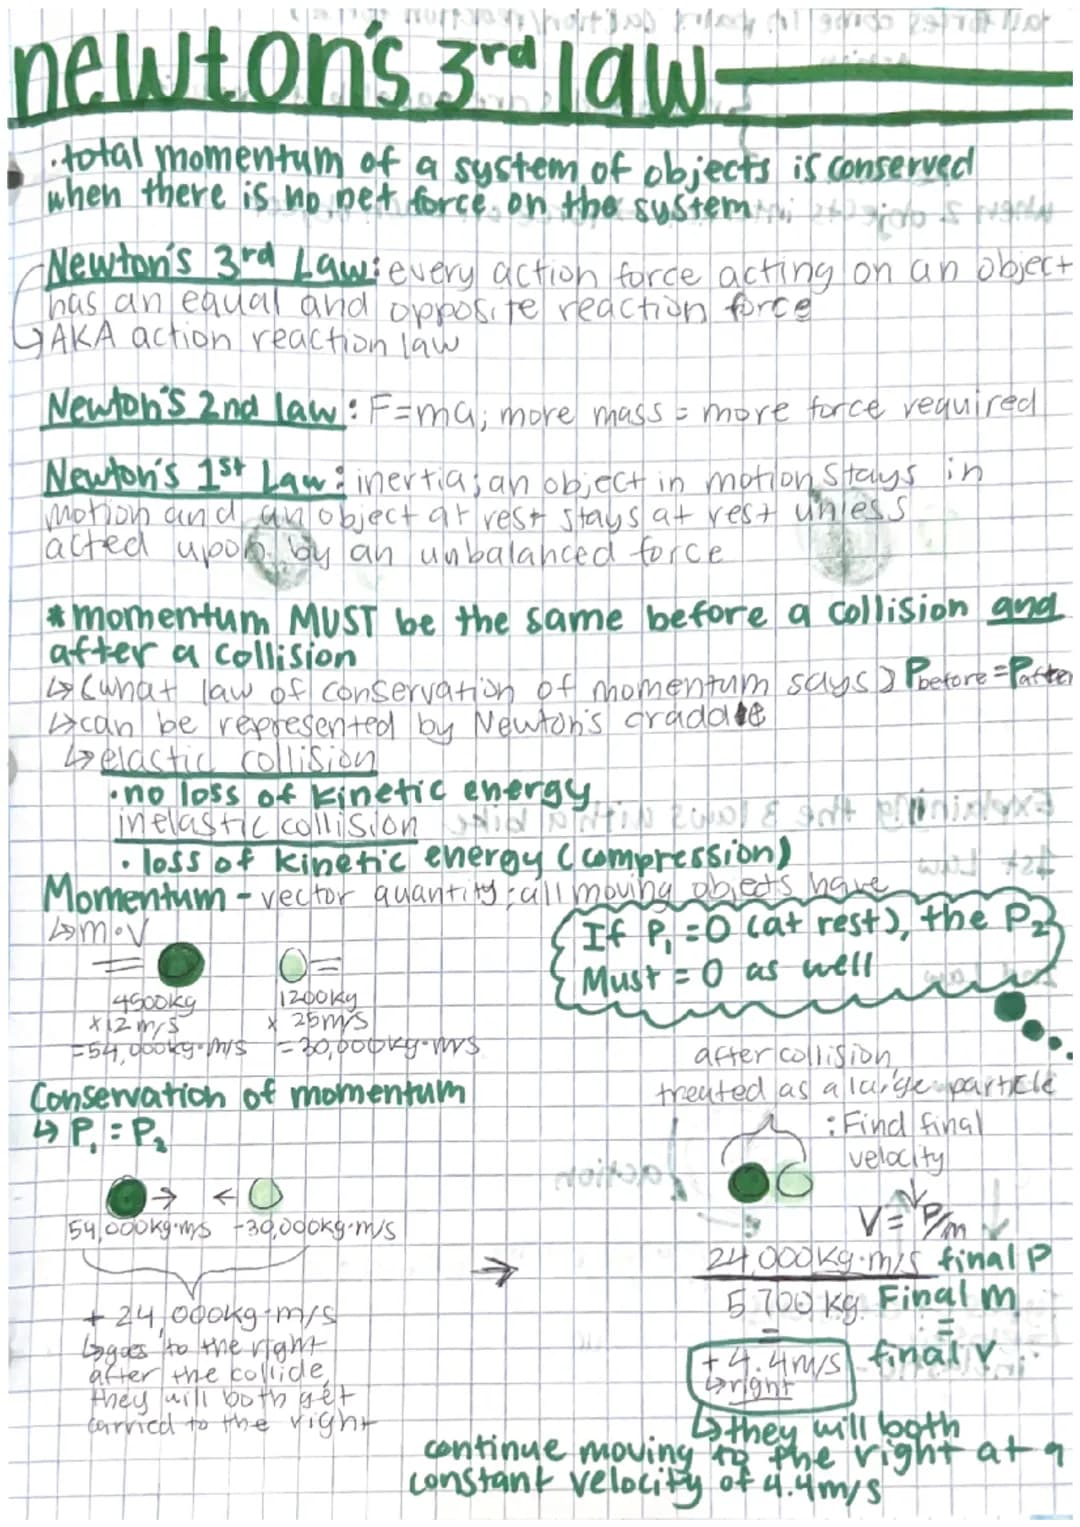 newton's 3rd law
· total momentum of a system of objects is conserved
when there is no net force on the system
Newton's 3rd Law: every action force acting on an object
has an equal and opposite reaction force
↳ AKA action reaction law
Newton's 2nd law: F=ma; more mass = more force required
Newton's 1st Law: inertia; an object in motion stays in
motion and an object at rest stays at rest unless
acted upon by an unbalanced force
* momentum MUST be the same before a collision and
after a collision
↳ (what law of conservation of momentum says) Pbefore = Pafter
↳ can be represented by Newton's craddle
↳ elastic collision
· no loss of kinetic energy
inelastic collision
· loss of kinetic energy (compression)
Momentum - vector quantity; all moving objects have
↳ m·v
If P₁ = 0 (at rest), the P₂
Must = 0 as well
4500kg
x 12 m/s
= 54,000kg·m/s
1200kg
x 25m/s
= 30,000kg·m/s
Conservation of momentum
↳ P₁ = P₂
54,000kg·m/s -30,000kg·m/s
+ 24,000kg·m/s
↳ goes to the right
after the collide,
they will both get
carried to the right
after collision,
treated as a large particle
: Find final
velocity
V = P/m
24,000kg·m/s final P
5700 kg Final m
=
=
+4.4m/s final v
↳ right
↳ they will both
continue moving to the right at a
constant velocity of 4.4m/s